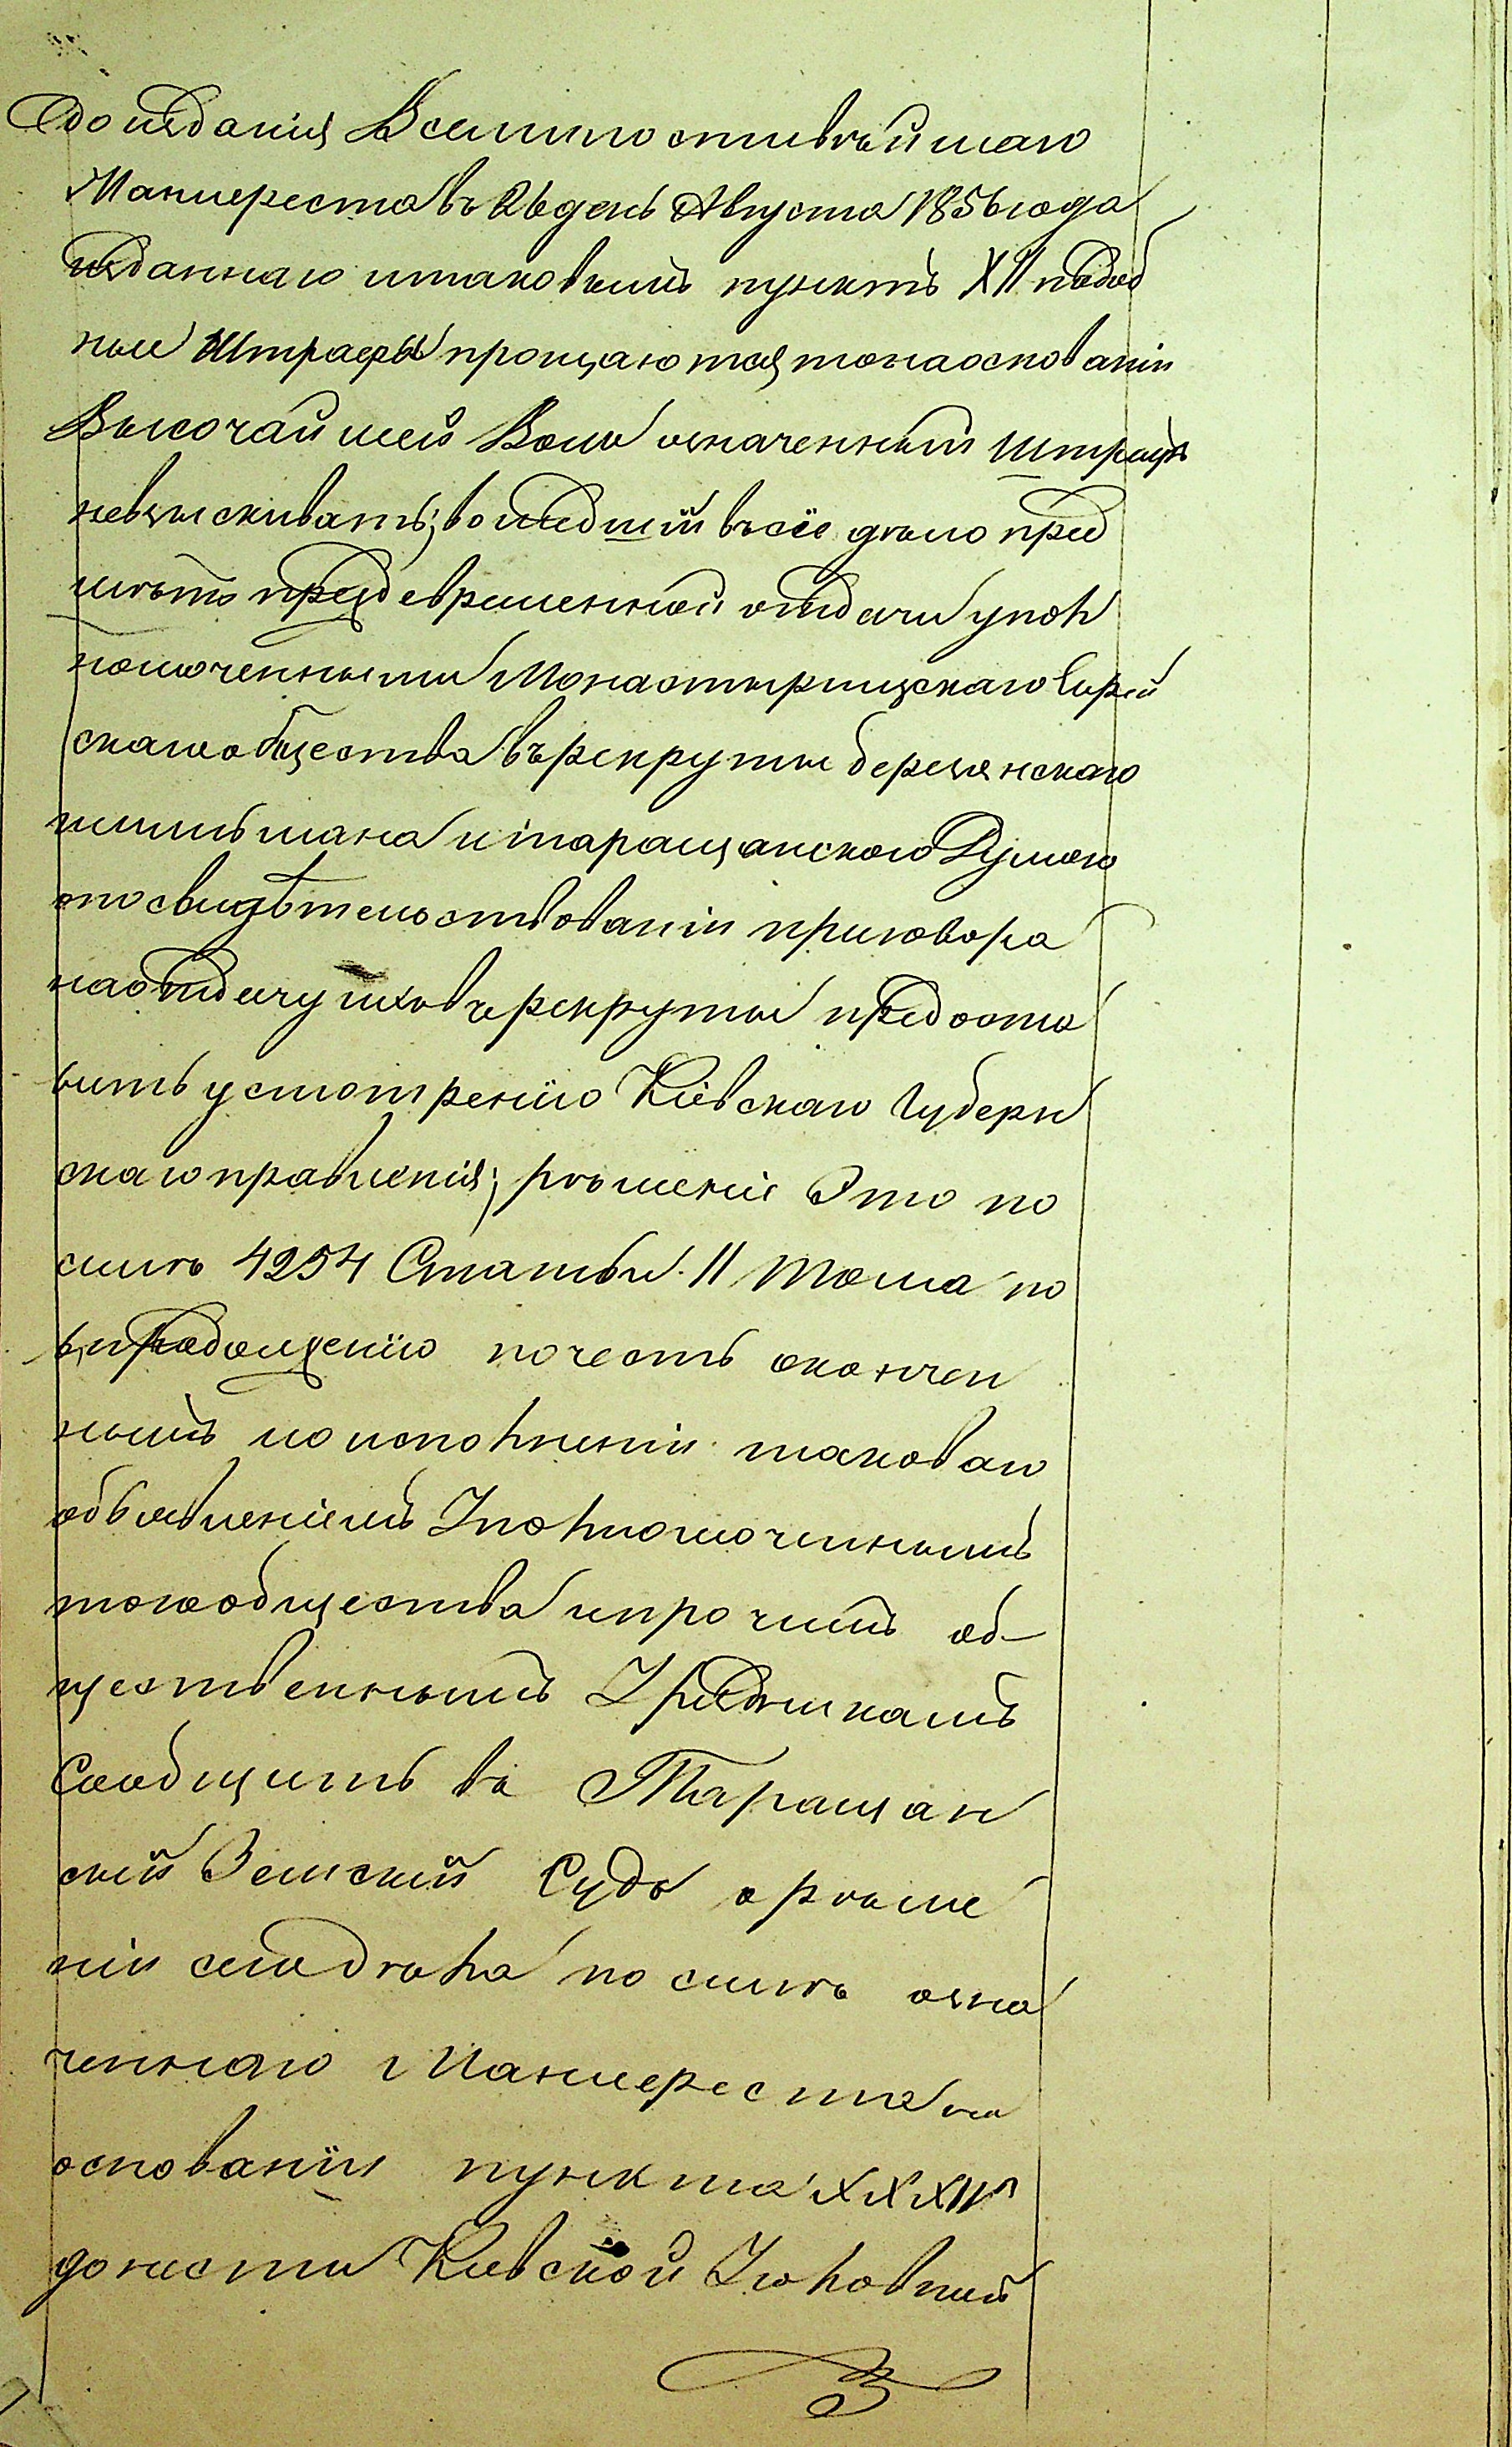 до изданія Всемилостивѣйшаго
Манифеста въ 26 день Августа 1856 года
изданнаго итаковымъ пунктъ XII подоб
ные Штрафы прощаются тонаоснованіи
Высочайшей Воли означенный Штрафъ
невзыскивать; вошедшій въсіе дѣло пред
мѣтъ предевременной отдачи упол
номоченными Монастырищскаго Еврей
скагообщества върекруты березянскаго
мишъ мана итаращанскою Думою
опосвидѣтельствованіи приговора
наотдачу ихъвъ рекруты предоста
вить усмотренію Кіевскаго Губерн
скаго правленія; рѣшеніе Это по
силѣ 4254 Статьи II Тома по
впродолженію почесть окончен
нымъ поисполненіи таковаго
объявленіемъ Уполномоченнымъ
тогообщества ипрочимъ об-
щественнымъ Урядникамъ
Сообщить въ Таращан
скій Земскій Судъ а рѣше
ніи сегодѣла по силѣ озна
ченнаго Манифеста на
основаніи пункта XXXII
донести Киевской Уголовной